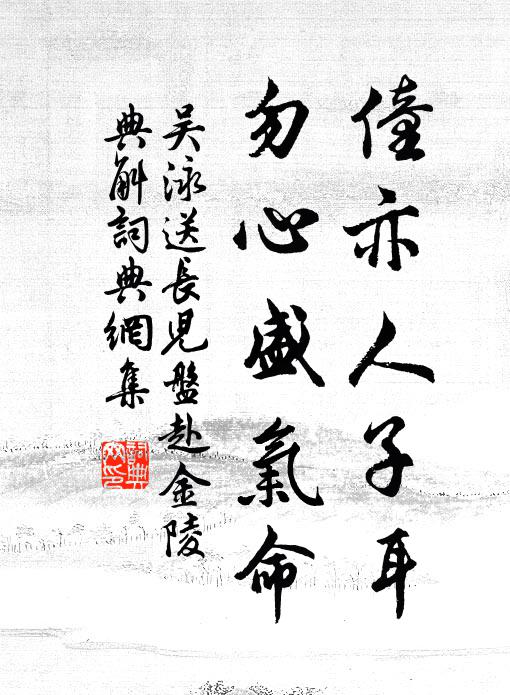 僮亦人子耳
勿心盛氣命
吴泳送長兒盤赴金陵
典斛詞典網集
詞典